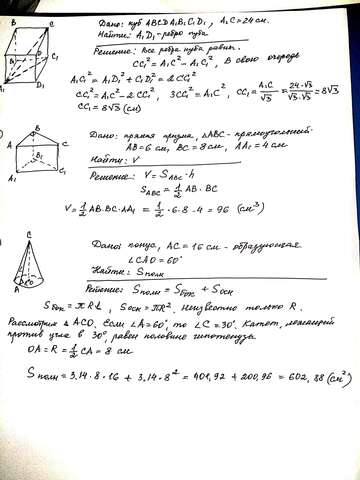 B C
A D
B₁ C₁
A₁ D₁
Дано: куб ABCDA₁B₁C₁D₁, A₁C=24 см.
Найти: A₁D₁-ребро куба
Решение: Все ребра куба равны.
CC₁² = A₁C² - A₁C₁², В свою очередь
A₁C₁² = A₁D₁² + C₁D₁² = 2CC₁²
CC₁² = A₁C² - 2CC₁², 3CC₁² = A₁C², CC₁ = A₁C/√3 = 24·√3/√3·√3 = 8√3
CC₁ = 8√3 (см)
B
A C
B₁
A₁ C₁
Дано: прямая призма, ΔABC - прямоугольный.
AB=6 см, BC=8 см, AA₁=4 см
Найти: V
Решение: V = S_ABC · h
S_ABC = 1/2 AB · BC
V = 1/2 AB · BC · AA₁ = 1/2 · 6 · 8 · 4 = 96 (см³)
C
A O
Дано: конус, AC = 16 см - образующая
∠CAO = 60°
Найти: Sполн
Решение: Sполн = Sбок + Sосн
Sбок = πRL, Sосн = πR². Неизвестно только R.
Рассмотрим Δ ACO. Если ∠A=60°, то ∠C=30°. Катет, лежащий
против угла в 30°, равен половине гипотенузы.
OA = R = 1/2 CA = 8 см
Sполн = 3,14 · 8 · 16 + 3,14 · 8² = 401,92 + 200,96 = 602,88 (см²)